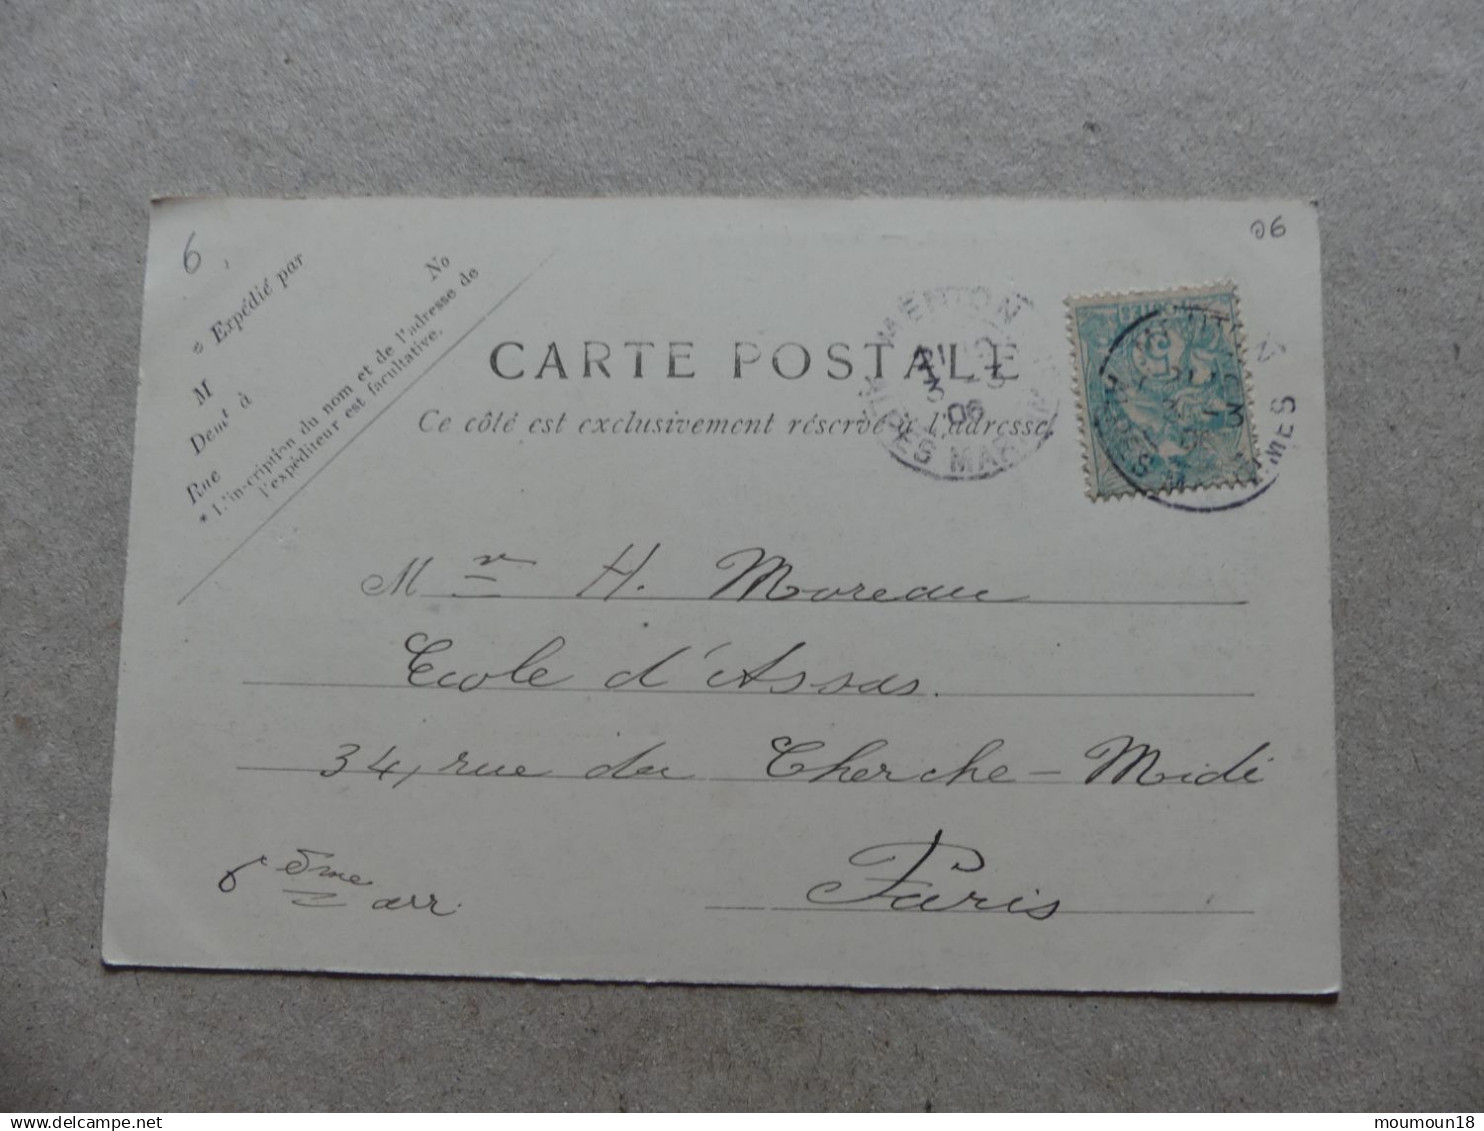 6
06
* Expédié par
No
M
Demt à
Rue
* L'inscription du nom et de l'adresse de
l'expéditeur est facultative.
CARTE POSTALE
Ce côté est exclusivement réservé à l'adresse
MENTON
3
06
ALPES MAR
5
Mr H. Moreau
Ecole d'Assas.
34, rue du Cherche-Midi
Paris
6ème arr.
www.delcampe.net
moumoun18